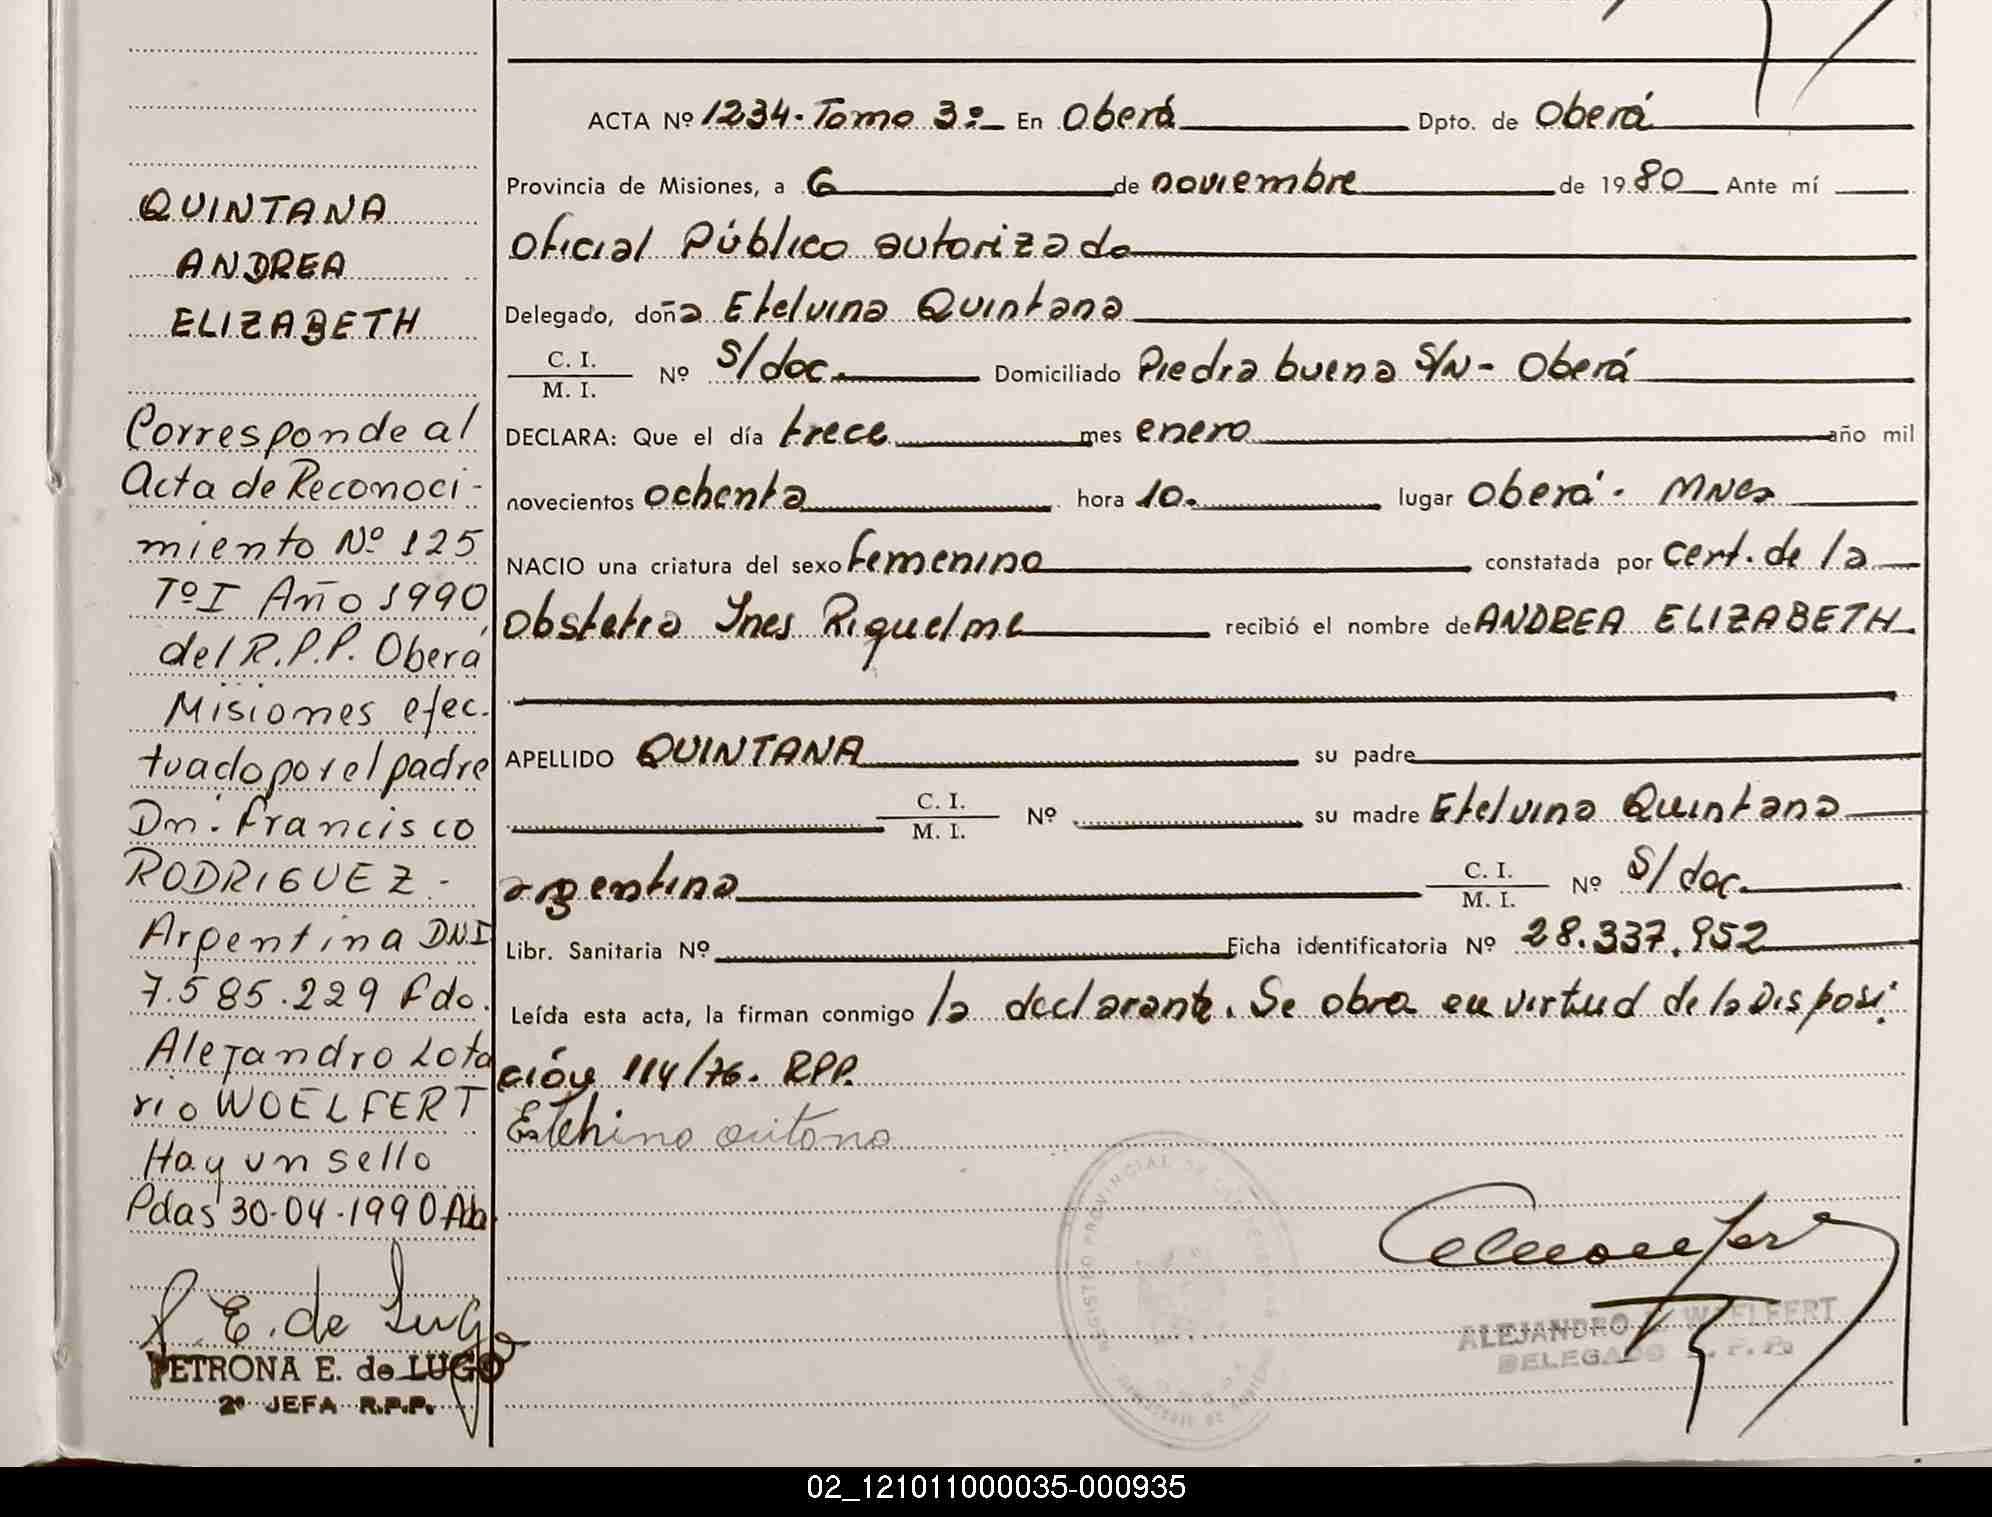 QUINTANA
ANDREA
ELIZABETH
Corresponde al
Acta de Reconoci-
miento Nº 125
Tº I Año 1990
del R.P.P. Oberá
Misiones efec.
tuado por el padre
Dn. Francisco
RODRIGUEZ -
Argentina DNI
7.585.229 Fdo.
Alejandro Lota
rio WOELFERT
Hay un sello
Pdas 30-04-1990
P. E. de Lugo
PETRONA E. de LUGO
2ª JEFA R.P.P.
ACTA Nº 1234-Tomo 3º En Oberá Dpto. de Oberá
Provincia de Misiones, a 6 de noviembre de 1980 Ante mí
Oficial Público autorizado
Delegado, doña Etelvina Quintana
C. I.
M. I. Nº S/doc. Domiciliado Piedra buena S/N - Oberá
DECLARA: Que el día trece mes enero año mil
novecientos ochenta hora 10. lugar Oberá - Mnes
NACIO una criatura del sexo femenino constatada por cert. de la
Obstetra Ines Riquelme recibió el nombre de ANDREA ELIZABETH
APELLIDO QUINTANA su padre
C. I.
M. I. Nº su madre Etelvina Quintana
argentina C. I.
M. I. Nº S/doc.
Libr. Sanitaria Nº Ficha identificatoria Nº 28.337.952
Leída esta acta, la firman conmigo la declarante. Se obra en virtud de la Disposi
ción 114/76. RPP.
REGISTRO PROVINCIAL DE
ALEJANDRO WOELFERT
DELEGADO R. P. P.
02_121011000035-000935